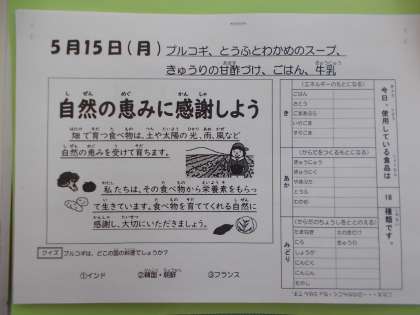 5月15日(月) プルコギ、とうふとわかめのスープ、
きゅうりの甘酢づけ、ごはん、牛乳
自然の恵みに感謝しよう
畑で育つ食べ物は、土や太陽の光、雨、風など
自然の恵みを受けて育ちます。
私たちは、その食べ物から栄養素をもらっ
て生きています。食べ物を育ててくれる自然に
感謝し、大切にいただきましょう。
クイズ プルコギは、どこの国の料理でしょうか?
①インド ②韓国・朝鮮 ③フランス
今日、使用している食品は
18
種類です。
き
(エネルギーのもとになる)
ごはん
さとう
ごまあぶら
いりごま
すりごま
あか
(からだをつくるもとになる)
ぎゅうにゅう
ぎゅうにく
とうふ
わかめ
みどり
(からだのちょうしをととのえる)
たまねぎ
にら
きゅうり
しょうが
にんにく
にんじん
もやし